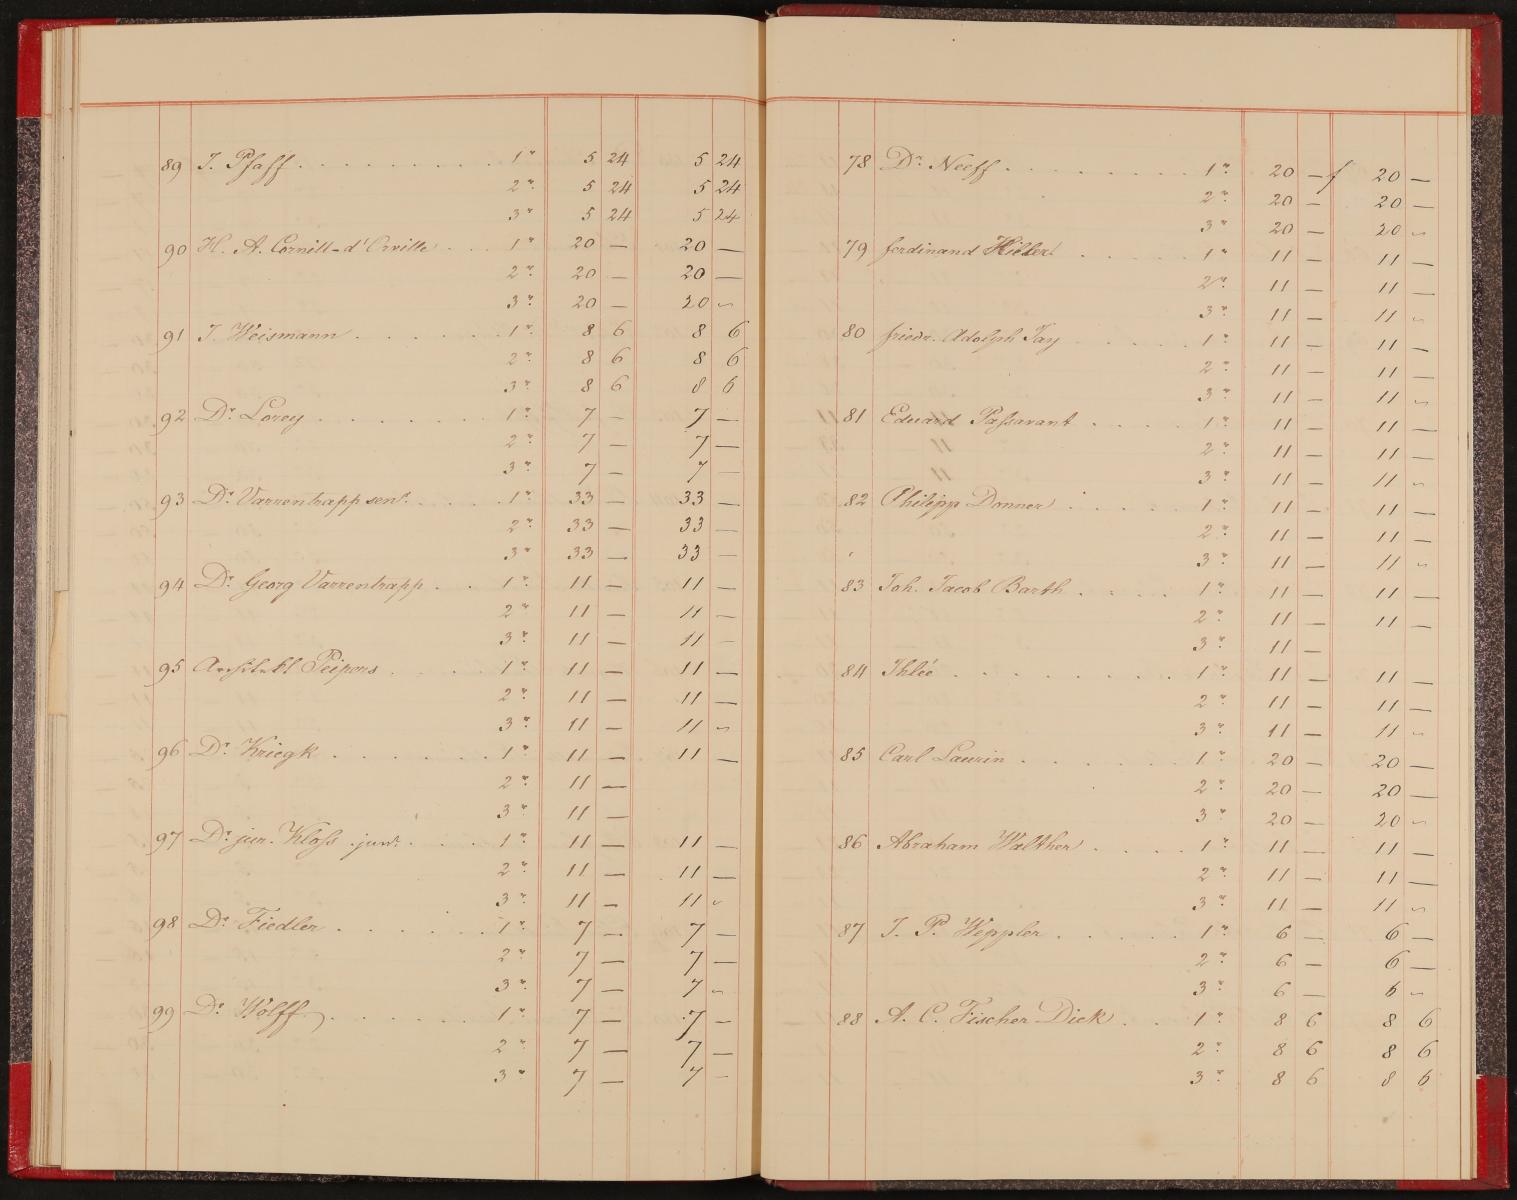 89 J. Pfaff . . . . . . . . 1r 5 24 5 24
2r 5 24 5 24
3r 5 24 5 24
90 H. A. Cornill-d'Orville . . . 1r 20 — 20 —
2r 20 — 20 —
3r 20 — 20 ~
91 J. Weismann . . . . . . 1r 8 6 8 6
2r 8 6 8 6
3r 8 6 8 6
92 Dr. Lorey . . . . . . . 1r 7 — 7 —
2r 7 — 7 —
3r 7 — 7 —
93 Dr. Varrentrapp senr. . . . . 1r 33 — 33 —
2r 33 — 33 —
3r 33 — 33 —
94 Dr. Georg Varrentrapp . . . 1r 11 — 11 —
2r 11 — 11 —
3r 11 — 11 —
95 Architekt Peipers . . . . 1r 11 — 11 —
2r 11 — 11 —
3r 11 — 11 ~
96 Dr. Kriegk . . . . . . . 1r 11 — 11 —
2r 11 —
3r 11 —
97 Dr. jur. Kloß junr. . . . 1r 11 — 11 —
2r 11 — 11 —
3r 11 — 11 ~
98 Dr. Fiedler . . . . . . . 1r 7 — 7 —
2r 7 — 7 —
3r 7 — 7 ~
99 Dr. Wolff . . . . . . . 1r 7 — 7 —
2r 7 — 7 —
3r 7 — 7 —
78 Dr. Neeff . . . . . . . . 1r 20 — f 20 —
2r 20 — 20 —
3r 20 — 20 ~
79 Ferdinand Hiller . . . . . 1r 11 — 11 —
2r 11 — 11 —
3r 11 — 11 ~
80 Friedr. Adolph Jay . . . . . 1r 11 — 11 —
2r 11 — 11 —
3r 11 — 11 ~
81 Eduard Paßavant . . . . 1r 11 — 11 —
2r 11 — 11 —
3r 11 — 11 ~
82 Philipp Donner . . . . . 1r 11 — 11 —
2r 11 — 11 —
3r 11 — 11 ~
83 Joh. Jacob Barth . . . . 1r 11 — 11 —
2r 11 — 11 —
3r 11 —
84 Ihlée . . . . . . . . . 1r 11 — 11 —
2r 11 — 11 —
3r 11 — 11 ~
85 Carl Laurin . . . . . . 1r 20 — 20 —
2r 20 — 20 —
3r 20 — 20 ~
86 Abraham Walther . . . . 1r 11 — 11 —
2r 11 — 11 —
3r 11 — 11 ~
87 J. P. Weppler . . . . . . 1r 6 — 6 —
2r 6 — 6 —
3r 6 — 6 ~
88 A. C. Fischer Dick . . 1r 8 6 8 6
2r 8 6 8 6
3r 8 6 8 6